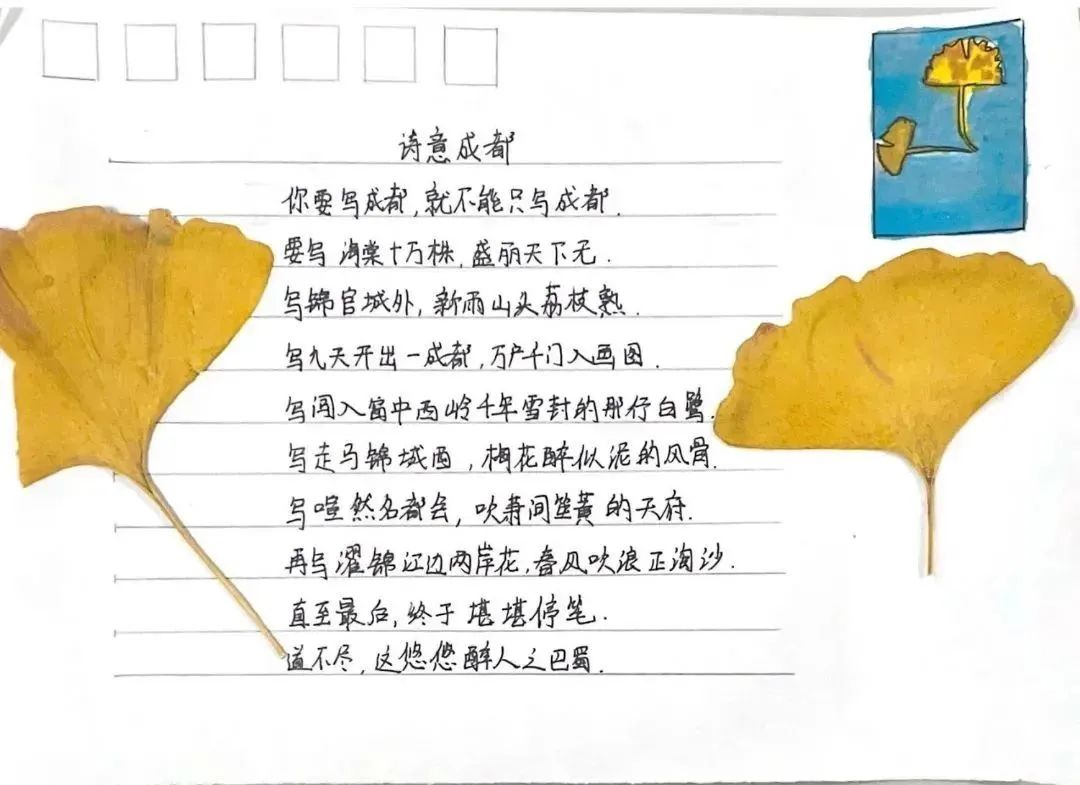 诗意成都
你要写成都,就不能只写成都.
要写 海棠十万株,盛丽天下无.
写锦官城外,新雨山头荔枝熟.
写九天开出一成都,万户千门入画图.
写闯入窗中西岭千年雪封的那行白鹭.
写走马锦城西,梅花醉似泥的风骨.
写喧然名都会,吹箫间笙簧的天府.
再写濯锦江边两岸花,春风吹浪正淘沙.
直至最后,终于 堪堪停笔.
道不尽,这悠悠醉人之巴蜀.